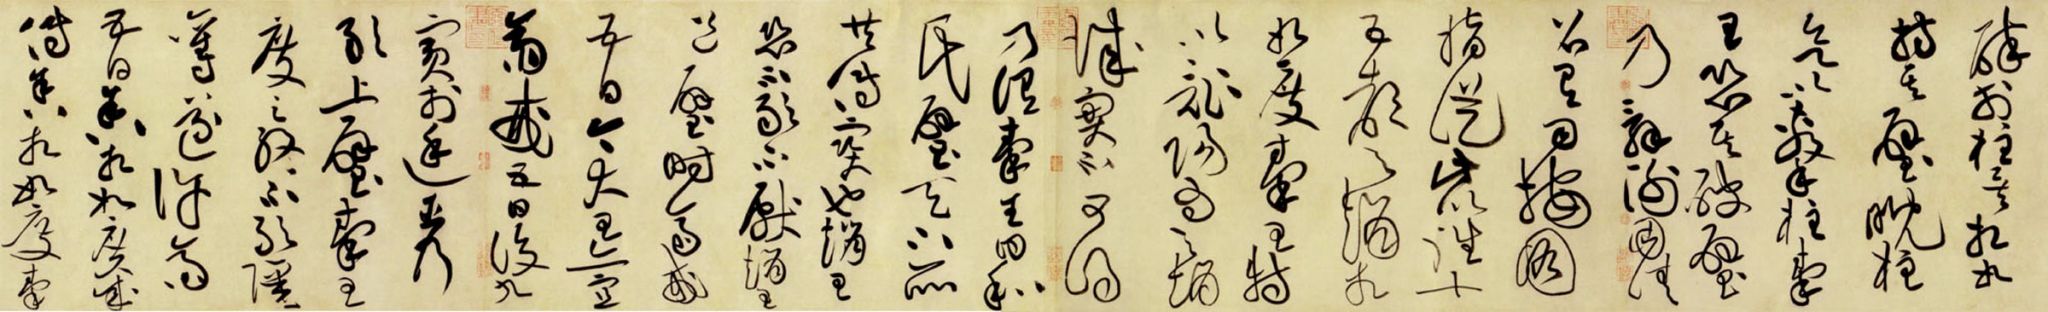 碎於柱矣相如
持其璧睨柱
欲以擊柱秦
王恐其破璧
乃辭謝固請
召有司按圖
指從此以往十
五都予趙相
如度秦王特
以詐陽為予趙
城實不可得
乃謂秦王曰和
氏璧天下所
共傳寶也趙王
恐不敢不獻趙王
送璧時齋戒
五日今大王亦宜
齋戒五日設九
賓於廷臣乃
敢上璧秦王
度之終不可強
奪遂許齋
五日舍相如廣成
傳舍相如度秦